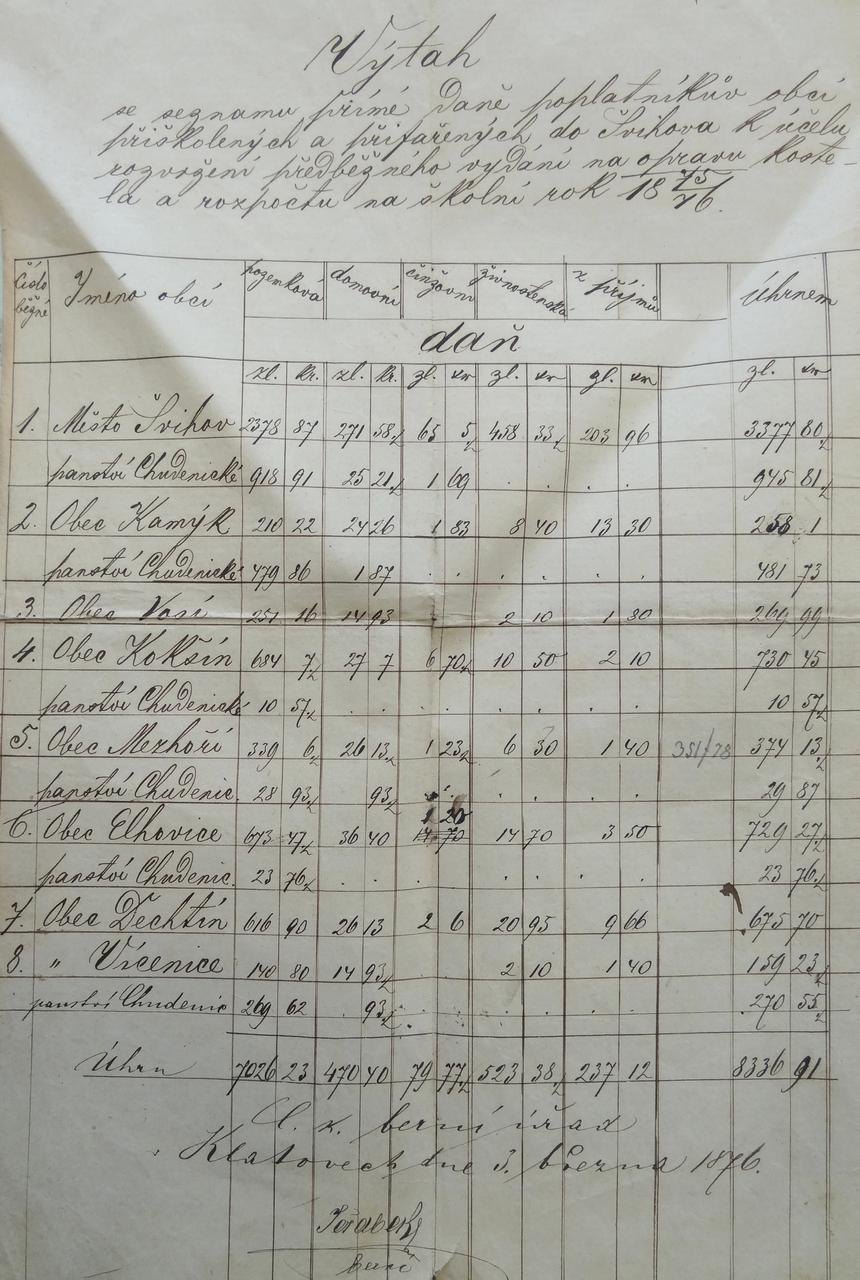 Výtah
se seznamu přímé daně poplatníkův obcí
přiškolených a přifařených do Švihova k účelu
rozvržení předběžného vydání na opravu koste-
la a rozpočtu na školní rok 18 75/76.
číslo běžné Jméno obcí pozemková domovní činžovní živnostenská z příjmů Úhrnem
daň
zl. kr. zl. kr. zl. kr zl. kr zl. kr zl. kr
1. Město Švihov 2378 87 271 58½ 65 5½ 458 33½ 203 96 3377 80½
panství Chudenické 918 91 25 21½ 1 69 . . . . 945 81½
2. Obec Kamýk 210 22 24 26 1 83 8 40 13 30 258 1
panství Chudenické 479 86 1 87 . . . . . . 481 73
3. Obec Vosí 251 16 14 93 . 2 10 1 80 269 99
4. Obec Kokšín 684 7½ 27 7 6 70½ 10 50 2 10 730 45
panství Chudenické 10 57½ . . . . . . . . 10 57½
5. Obec Mezhoří 339 6½ 26 13½ 1 23½ 6 30 1 40 351/78 374 13½
panství Chudenic. 28 93½ 93½ . . . . . . 29 87
1 20
6. Obec Elhovice 673 47½ 36 40 14 70 14 70 3 50 729 27½
panství Chudenic. 23 76½ . . . . . . . . 23 76½
7. Obec Dechtín 616 90 26 13 2 6 20 95 9 66 675 70
8. " Vícenice 140 80 14 93½ . . 2 10 1 40 159 23½
panství Chudenic 269 62 . 93½ . . . . . . 270 55½
Úhrn 7026 23 470 40 79 77½ 523 38½ 237 12 8336 91
C. k. berní úřad
Klatovech dne 3. března 1876.
berní